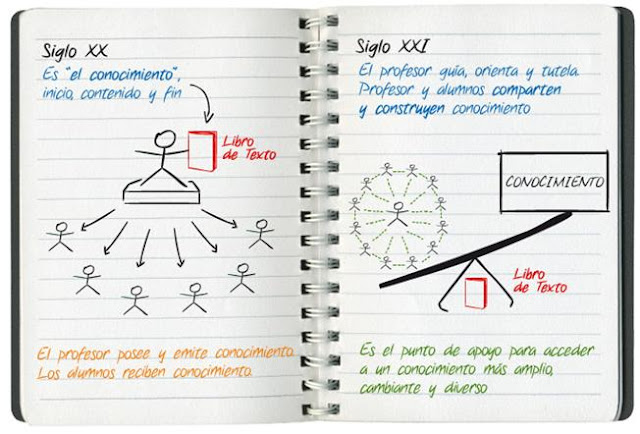 Siglo XX
Es "el conocimiento",
inicio, contenido y fin
Libro
de Texto
El profesor posee y emite conocimiento.
Los alumnos reciben conocimiento.
Siglo XXI
El profesor guía, orienta y tutela.
Profesor y alumnos comparten
y construyen conocimiento
CONOCIMIENTO
Libro
de Texto
Es el punto de apoyo para acceder
a un conocimiento más amplio,
cambiante y diverso